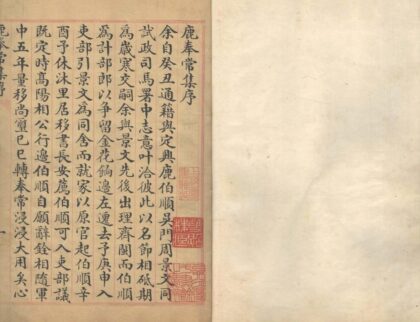 鹿奉常集序
余自癸丑通籍與定興鹿伯順吳門周景文同
試政司馬署中志意叶洽彼此以名節相砥期
為歲寒交嗣余與景文先後出理齊閩而伯順
為計部郎以爭留金花餉邊左遷去予庚申入
吏部引景文為同舍而就家以原官起伯順辛
酉予休沐里居移書長安薦伯順可入吏部議
既定時高陽相公行邊伯順自願辭銓相隨軍
中五年量移尚璽己巳轉奉常浸浸大用矣心
鹿奉常集序
一